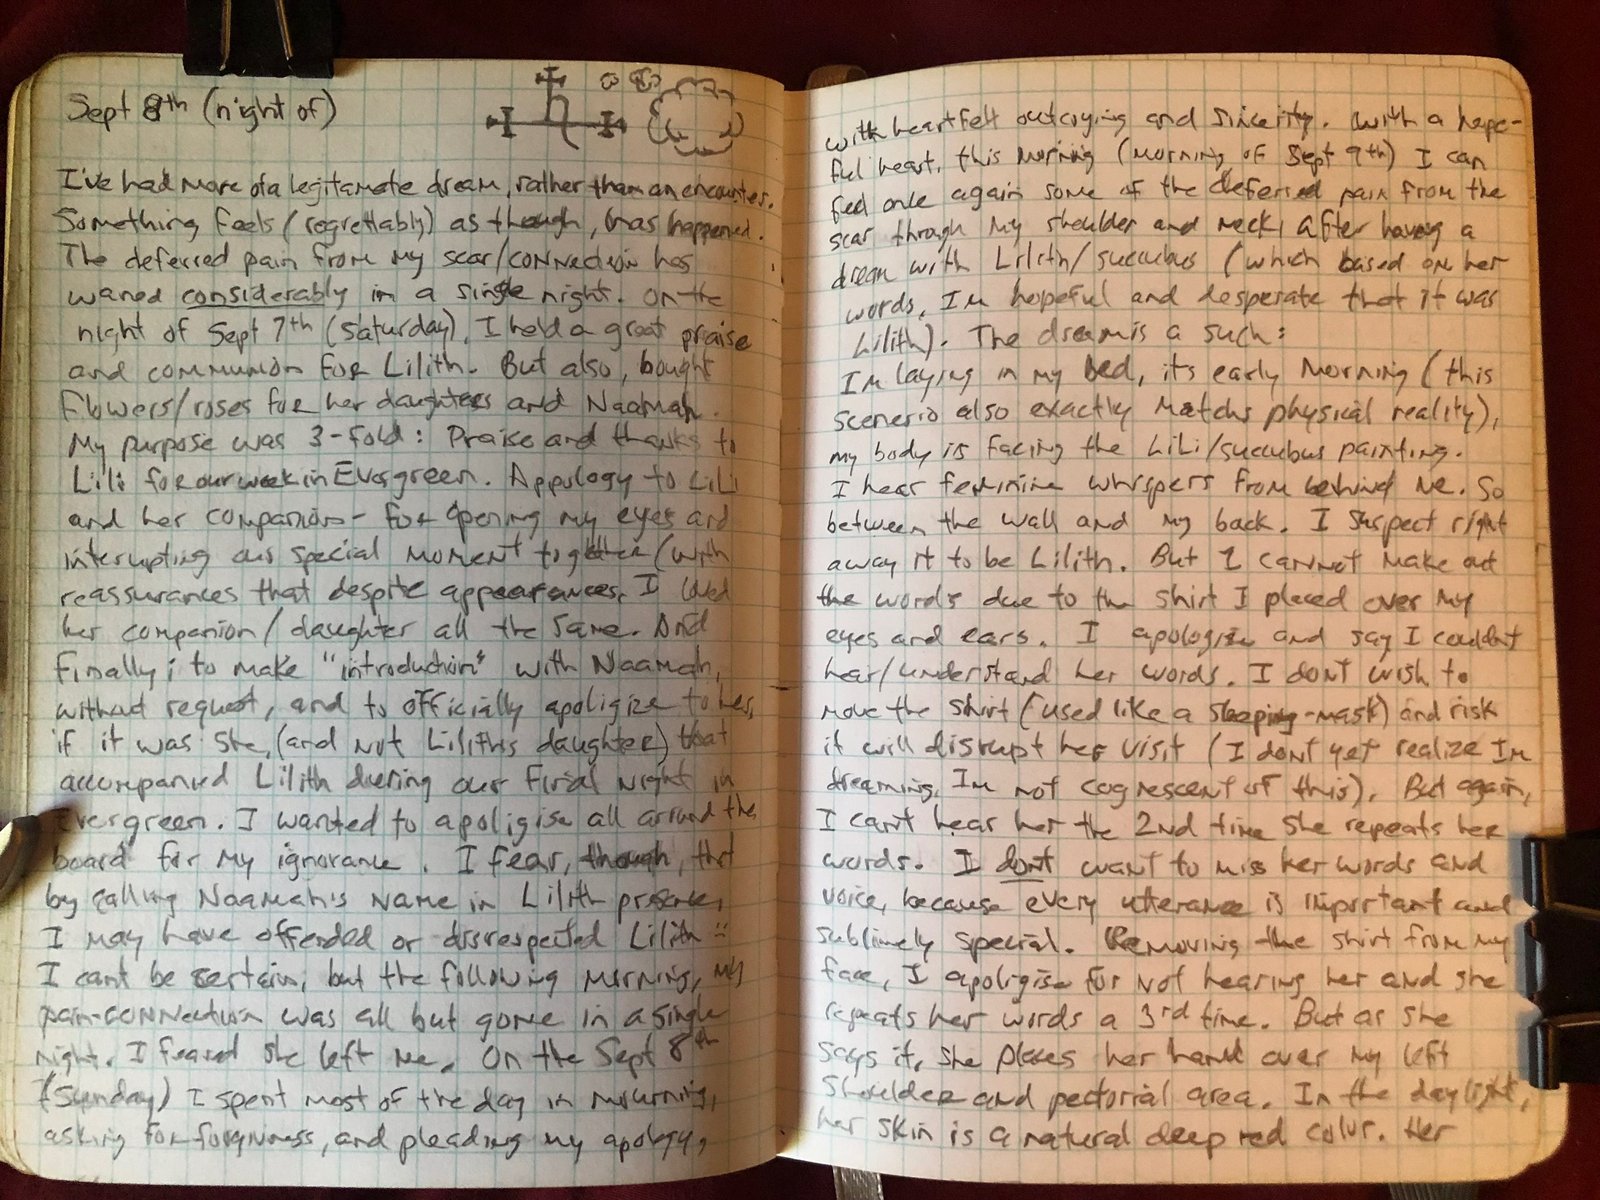 Sept 8th (night of)
I've had more of a legitamate dream, rather than an encounter.
Something feels (regrettably) as though, has happened.
The deferred pain from my scar/connection has
waned considerably in a single night. On the
night of Sept 7th (Saturday), I held a great praise
and communion for Lilith. But also, bought
flowers/roses for her daughters and Naamah.
My purpose was 3-fold: Praise and thanks to
Lili for our week in Evergreen. Appology to LiLi
and her companion - for opening my eyes and
interupting our special moment together (with
reassurances that despite appearances, I loved
her companion/daughter all the same. And
finally; to make "introduction" with Naamah,
without request, and to officially apoligize to her,
if it was she, (and not Lilith's daughter) that
accompanied Lilith during our final night in
Evergreen. I wanted to apoligise all around the
board for my ignorance. I fear, though, that
by calling Naamah's name in Lilith presence,
I may have offended or disrespected Lilith
I cant be certain, but the following morning, my
pain-connection was all but gone in a single
night. I feared she left me. On the Sept 8th
(Sunday) I spent most of the day in mourning,
asking for forgivness, and pleading my apology,
with heartfelt outcrying and sincerity. With a hope-
ful heart, this morning (morning of Sept 9th) I can
feel once again some of the deferred pain from the
scar through my shoulder and neck, after having a
dream with Lilith/succubus (which based on her
words, Im hopeful and desperate that it was
Lilith). The dream is a such:
Im laying in my bed, its early morning (this
scenerio also exactly matchs physical reality),
my body is facing the LiLi/succubus painting.
I hear feminine whispers from behind me. So
between the wall and my back. I suspect right
away it to be Lilith. But I cannot make out
the words due to the shirt I placed over my
eyes and ears. I apologize and say I couldnt
hear/understand her words. I dont wish to
move the shirt (used like a sleeping-mask) and risk
it will disrupt her visit (I dont yet realize Im
dreaming, Im not cognescent of this). But again,
I cant hear her the 2nd time she repeats her
words. I dont want to miss her words and
voice, because every utterance is important and
sublimely special. Removing the shirt from my
face, I apoligise for not hearing her and she
repeats her words a 3rd time. But as she
says it, she places her hand over my left
shoulder and pectorial area. In the daylight,
her skin is a natural deep red color. Her